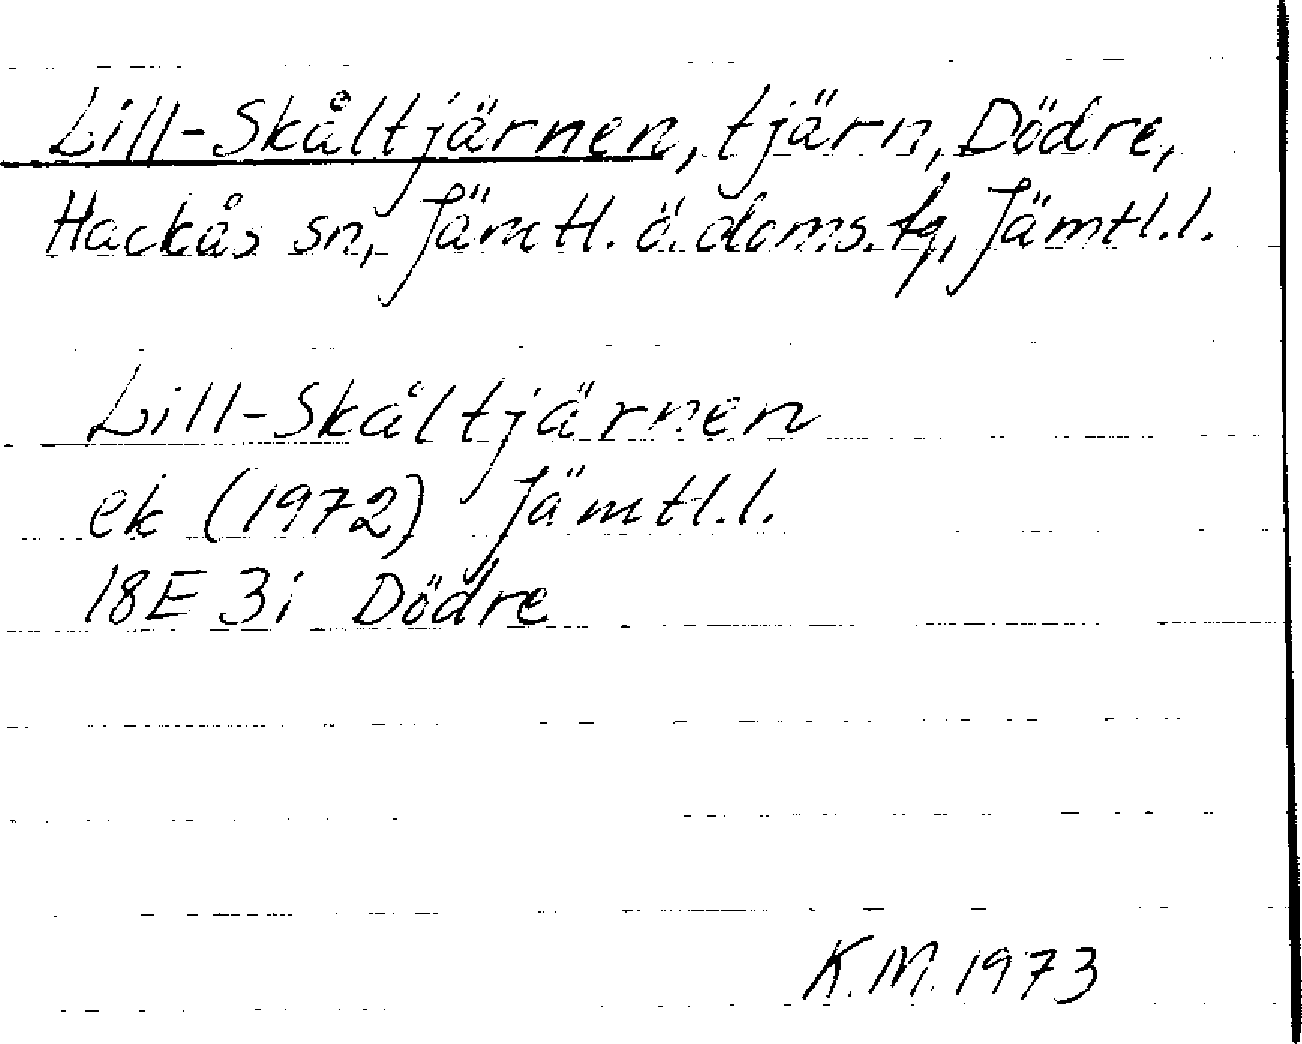 Lill-Skåltjärnen, tjärn, Dödre,
Hackås sn, Jämtl. ö. doms. fg, Jämtl.l.
Lill-Skåltjärnen
ek (1972) Jämtl.l.
18E 3i Dödre
K.M. 1973